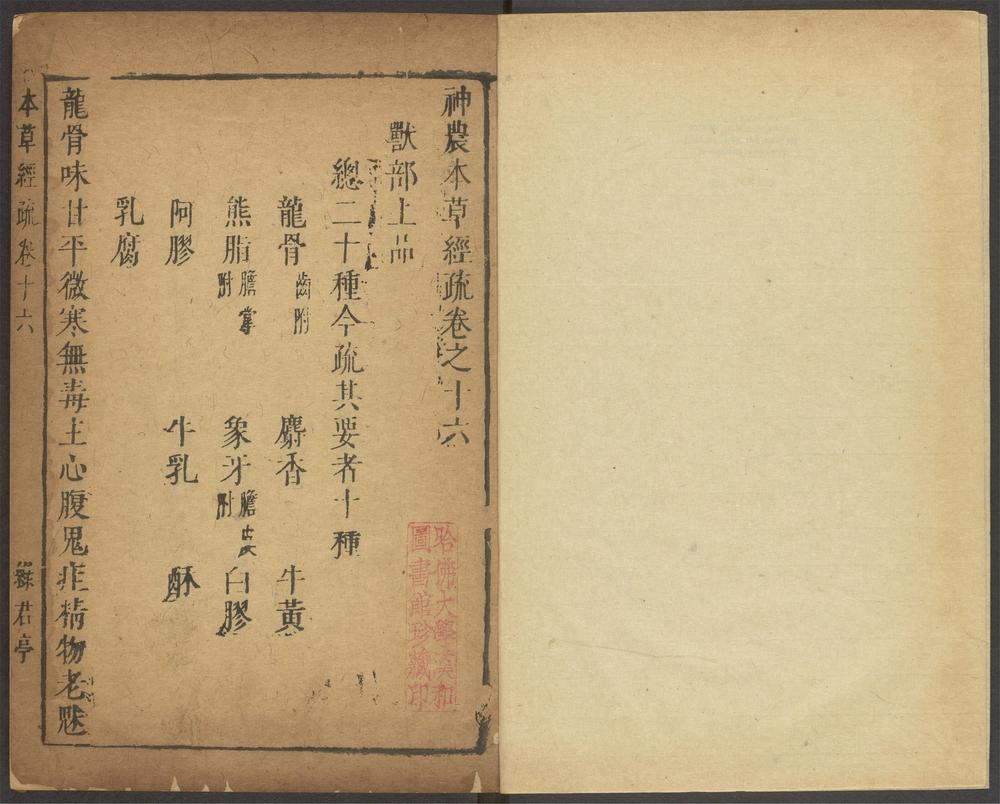 神農本草經疏卷之十六
獸部上品
總二十種今疏其要者十種
龍骨 齒附 麝香 牛黃
熊脂 膽掌附 象牙 膽皮附 白膠
阿膠 牛乳 酥
乳腐
龍骨味甘平微寒無毒主心腹鬼疰精物老魅
本草經疏 卷十六 綠君亭
哈佛大學漢和
圖書館珍藏印